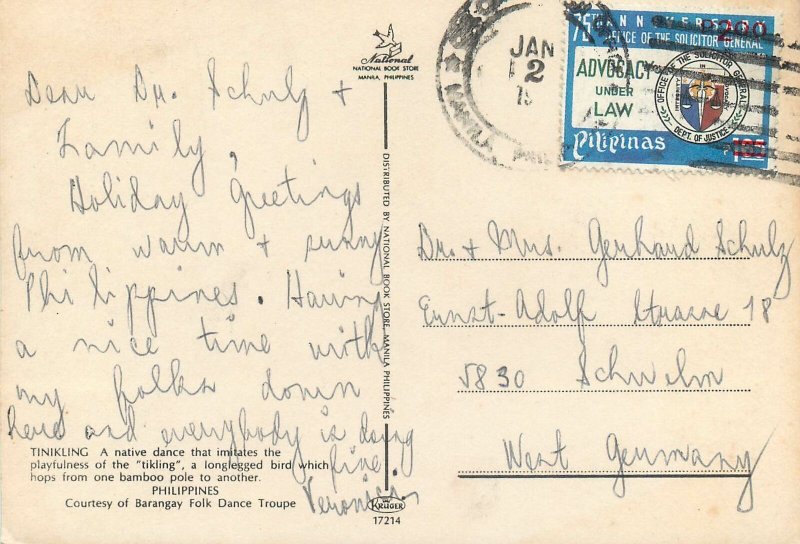 Dear Dr. Schulz +
Family,
Holiday Greetings
from warm + sunny
Philippines. Having
a nice time with
my folks down
here and everybody is doing
fine
Veronica
TINIKLING A native dance that imitates the
playfulness of the "tikling", a longlegged bird which
hops from one bamboo pole to another.
PHILIPPINES
Courtesy of Barangay Folk Dance Troupe
National
NATIONAL BOOK STORE
MANILA, PHILIPPINES
DISTRIBUTED BY NATIONAL BOOK STORE, MANILA PHILIPPINES
KRUGER
17214
JAN
2
MANILA
75TH ANNIVERSARY
OFFICE OF THE SOLICITOR GENERAL
P2.00
ADVOCACY
UNDER
LAW
OFFICE OF THE SOLICITOR GENERAL
DEPT. OF JUSTICE
Pilipinas
Dr. + Mrs. Gerhard Schulz
Ernst-Adolf Strasse 18
5830 Schwelm
West Germany